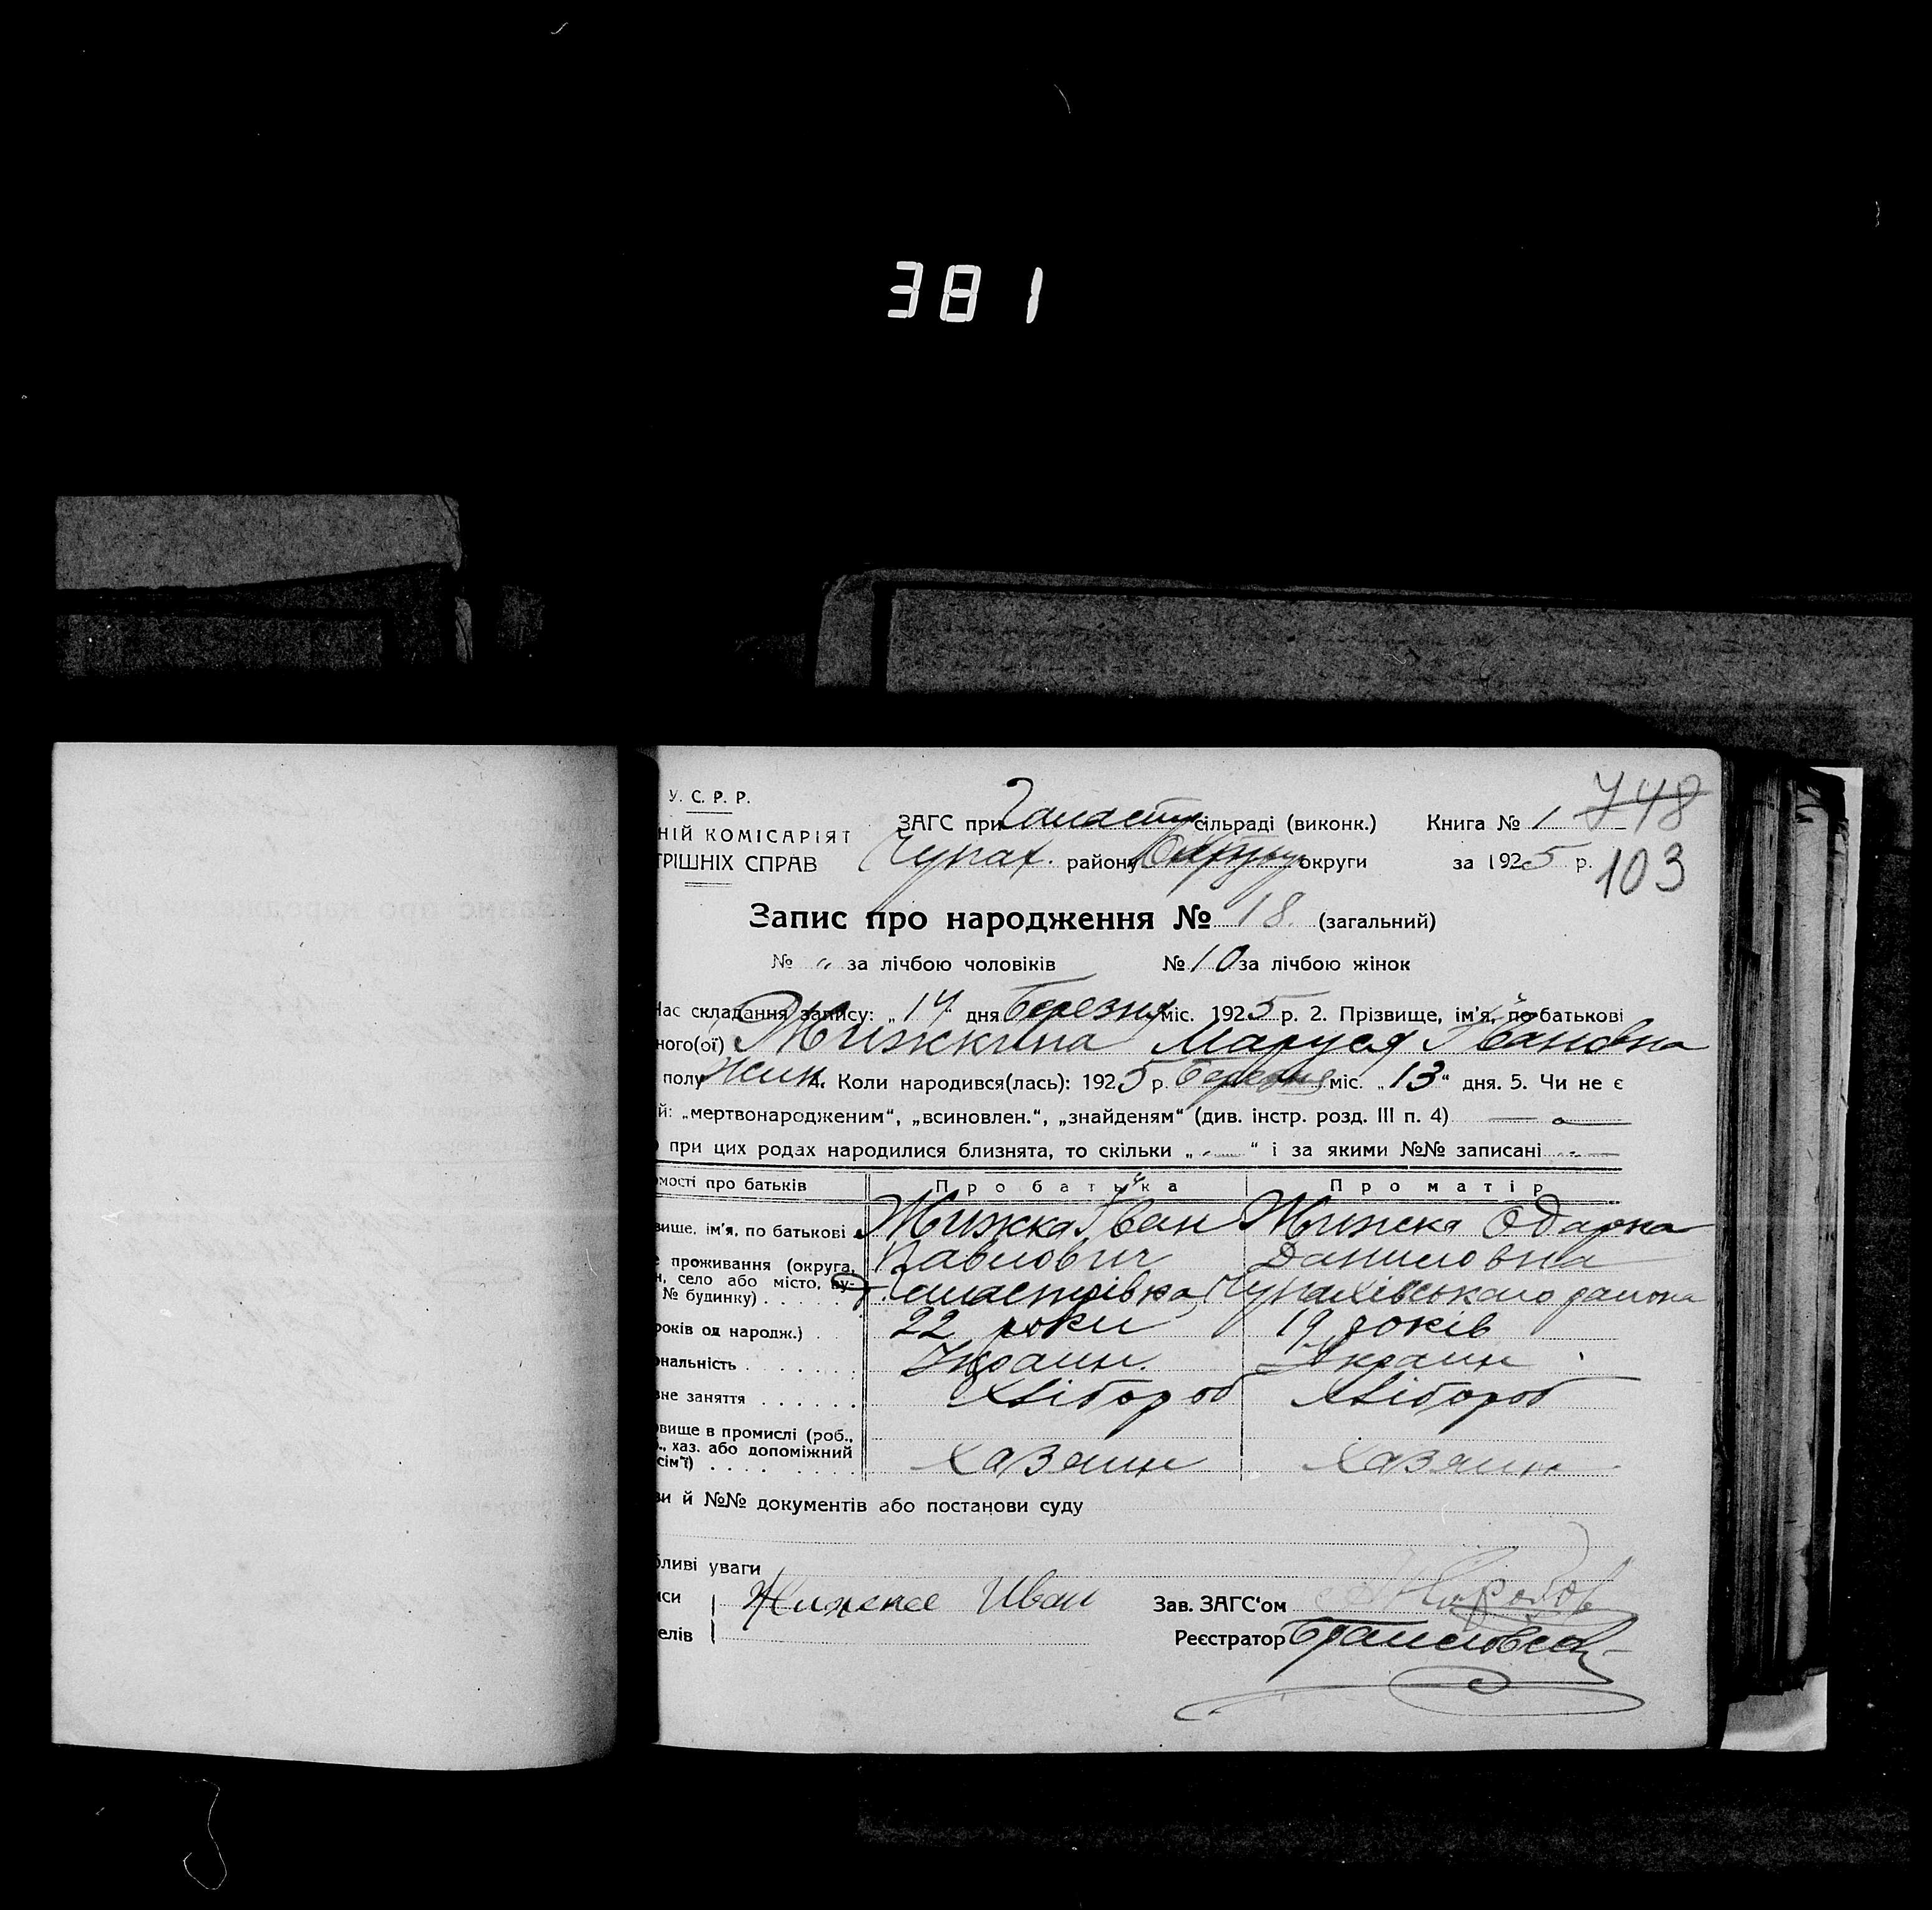 381
У. С. Р. Р.
ЗАГС при сільраді (виконк.) Книга № 1 748
НІЙ КОМІСАРІЯТ
ТРІШНІХ СПРАВ Чупах. району округи за 1925 р. 103
Запис про народження № 18. (загальний)
№ „ за лічбою чоловіків № 10 за лічбою жінок
Час складання запису: „14“ дня Березня міс. 1925 р. 2. Прізвище, ім'я, по батькові
ного(ої) Жижкина Маруся Івановна
полу жин. 4. Коли народився(лась): 1925 р. березня міс. „13“ дня. 5. Чи не є
й: „мертвонародженим“, „всиновлен.“, „знайденям“ (див. інстр. розд. III п. 4) —
) при цих родах народилися близнята, то скільки „—“ і за якими №№ записані —
мості про батьків Про батька Про матір
вище, ім'я, по батькові Жижка Іван Жижка Одарка
Павлович Даниловна
проживання (округа,
н, село або місто, ву-
№ будинку) . . . . . Чупахівського району
років од народж.) . . 22 роки 19 років
ональність . . . . . . Украин. Украин
вне заняття . . . . . . Хлібороб Хлібороб
овище в промислі (роб.,
., хаз. або допоміжний
сім'ї) . . . . . . Хазяин Хазяин
ви й №№ документів або постанови суду
бливі уваги
иси Жижка Иван Зав. ЗАГС'ом
елів Реєстратор